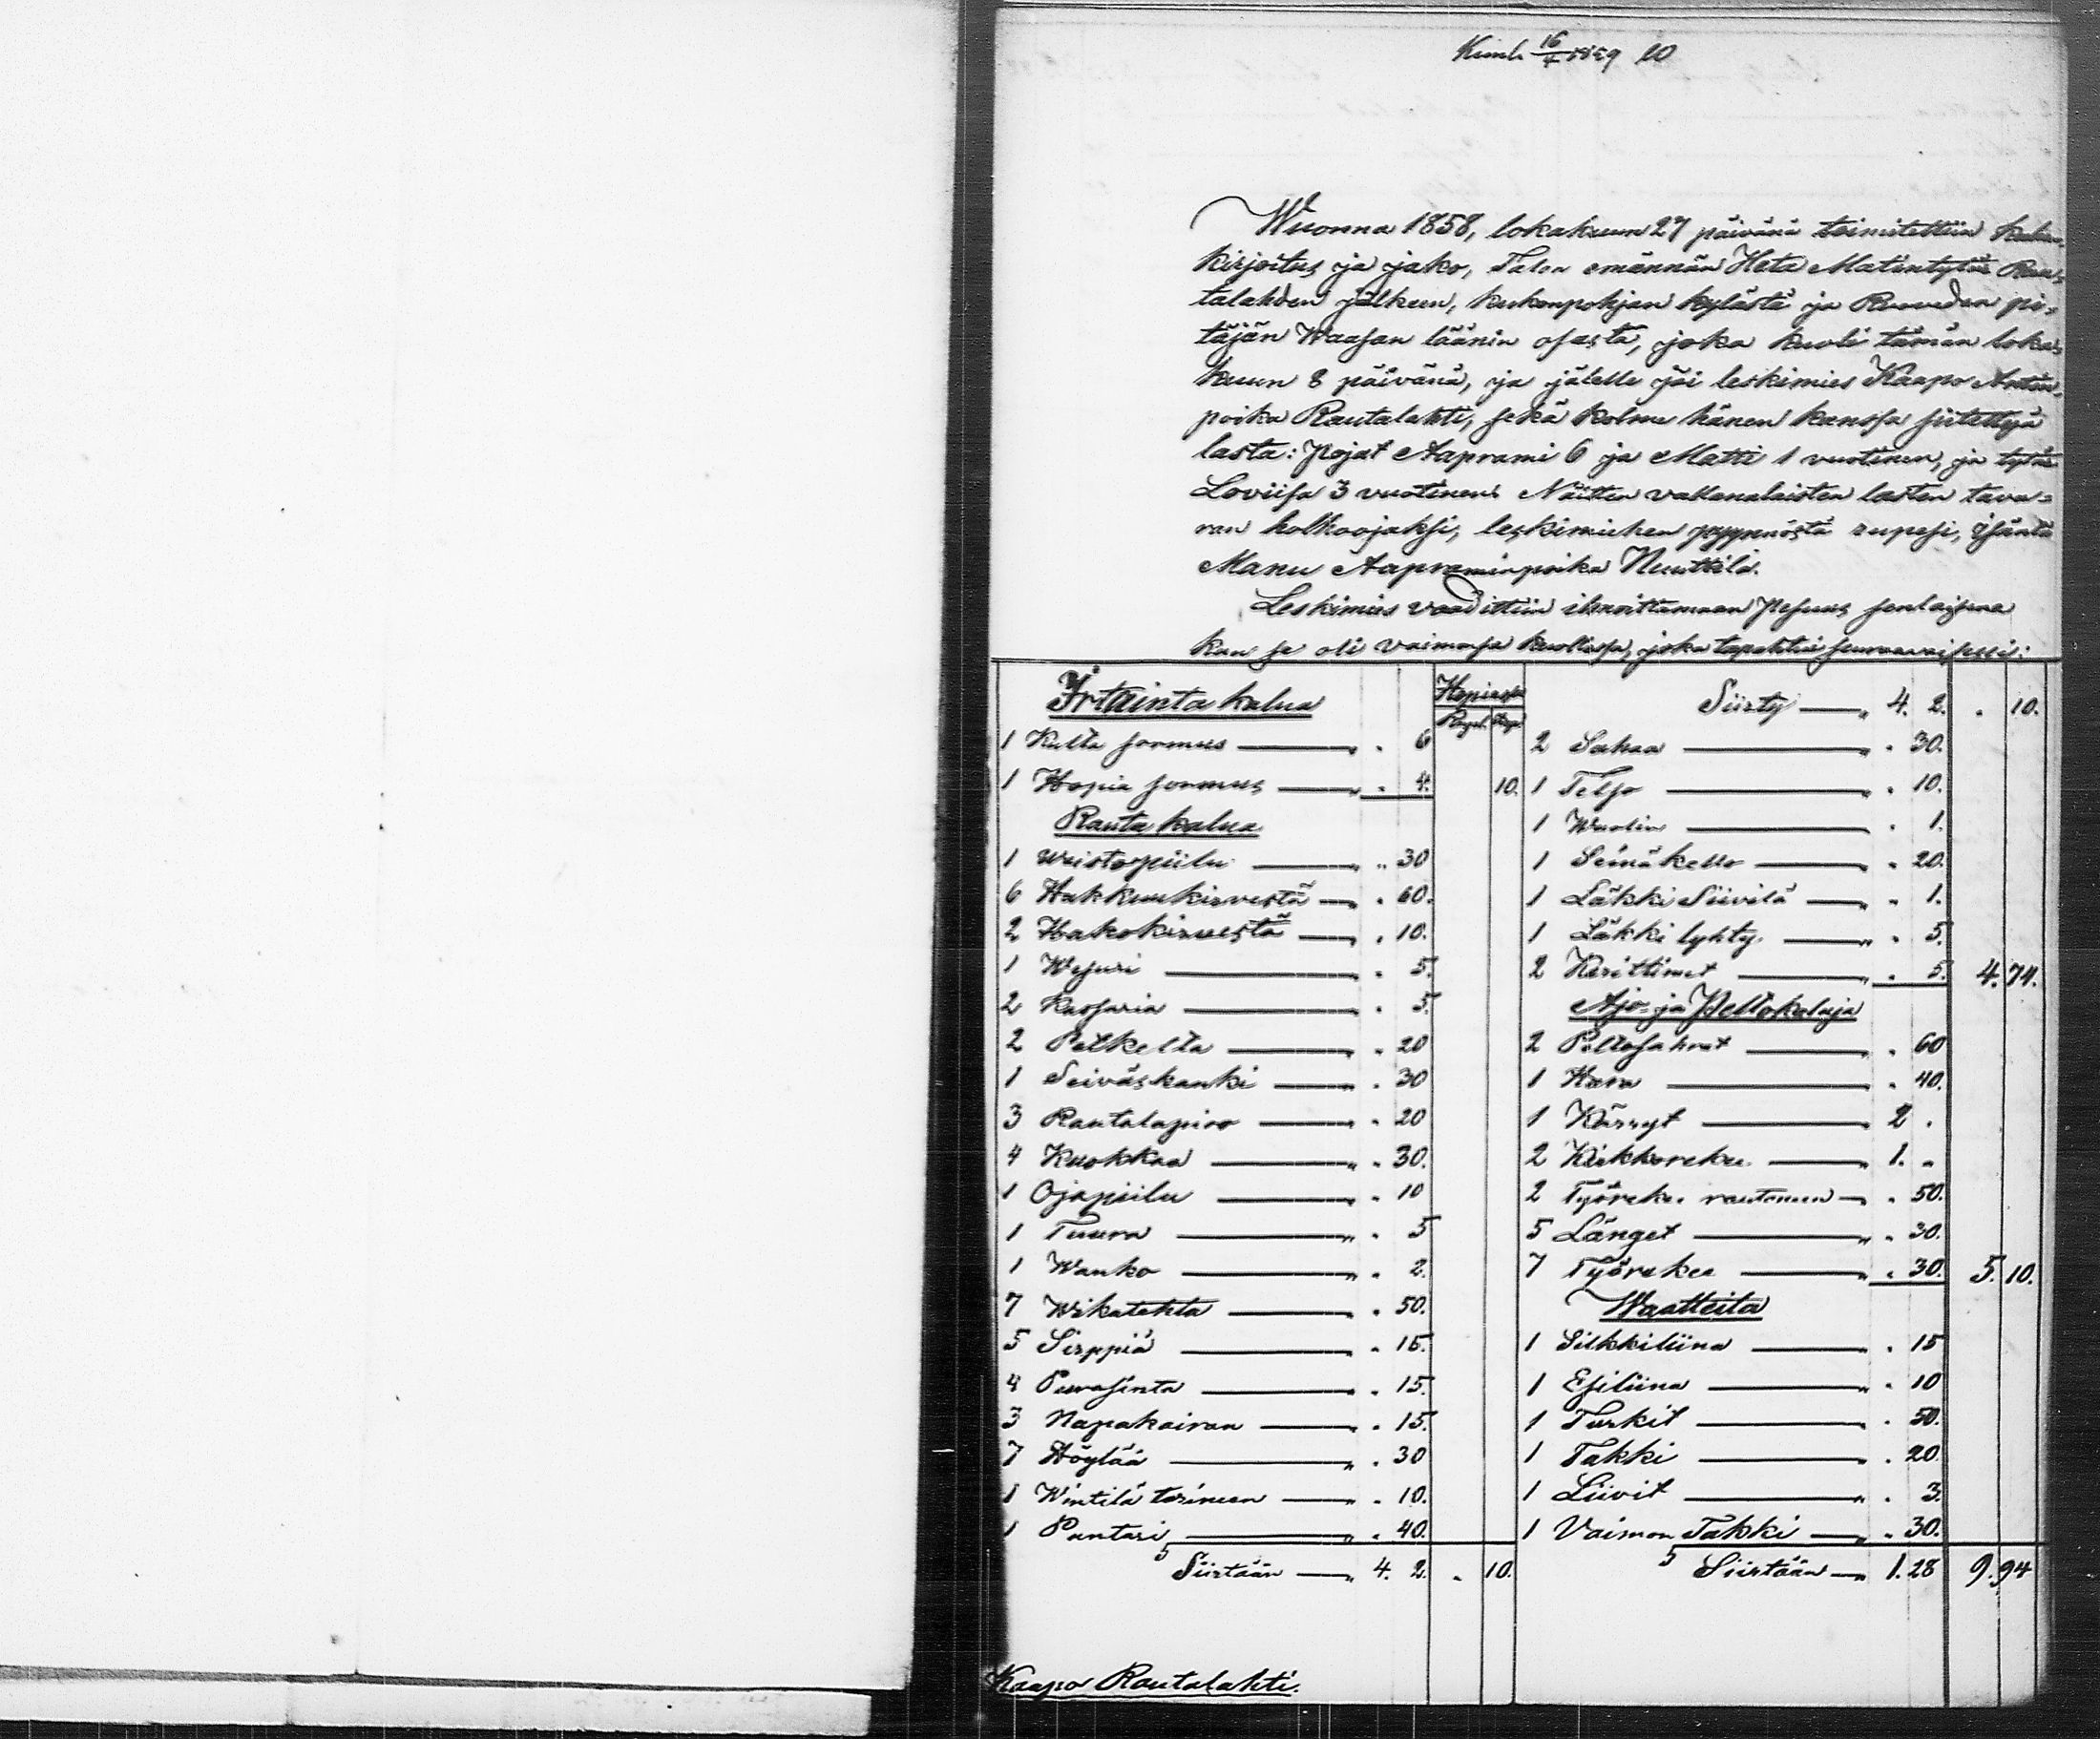 16/4 1859 10
Wuonna 1858, lokakuun 27 päivänä toimitettiin kalun-
kirjoitus ja jako, Talon emännän Heta Matintytär Rau-
talahden jälkeen, kukonpohjan kylästä ja Ruoveden pi-
täjän Waasan läänin osasta, joka kuoli tämän loka-
kuun 8 päivänä, ja jälelle jäi leskimies Kaapo Antin-
poika Rautalahti, sekä kolme hänen kanssa siitettyä
lasta: Pojat Aaprami 6 ja Matti 1 vuotinen, ja tytär
Loviisa 3 vuotinen. Näitten vallanalaisten lasten tava-
ran holhoojaksi, leskimiehen pyynnöstä rupesi, isäntä
Manu Aapraminpoika Nuuttila.
Leskimies vaadittiin ilmoittamaan Pesuus senlaisna
kun se oli vaimonsa kuollessa, joka tapahtui seuraavaisesti:
Irtainta kalua
Hopiassa
Rupl. Kop.
1 Kulta sormus " 6
1 Hopia sormus " 4. 10.
Rauta kalua
1 Weistopiilu " 30
6 Hakkuukirvestä " 60.
2 Hakokirvestä " 10.
1 Wesuri " 5.
2 Kassaria " 5.
2 Petkeltä " 20
1 Seiväskanki " 30
3 Rautalapioo " 20
4 Kuokkaa " 30.
1 Ojapiilu " 10
1 Tuura " 5
1 Wanko " 2.
7 Wikatehta " 50.
5 Sirppiä " 15.
4 Purasinta " 15.
3 Napakairan " 15.
7 Höylää " 30
1 Wintilä terineen " 10.
1 Puntari " 40.
Siirtään 4. 2. " 10.
Siirty 4. 2. " 10.
2 Sahaa " 30.
1 Teljo " 10.
1 Wuolin " 1.
1 Seinäkello " 20.
1 Läkki Siivilä " 1.
1 Läkki lyhty " 5.
2 Kerittimet " 5. 4. 74.
Ajo- ja Peltokaluja
2 Peltosahrat " 60
1 Hara " 40.
1 Kärryt 2 "
2 Kirkkoreke 1. "
2 Työreke rautoneen " 50.
5 Länget " 30.
7 Työreke " 30. 5. 10.
Waatteita
1 Silkkiliina " 15
1 Esiliina " 10
1 Turkit " 50.
1 Takki " 20
1 Liivit " 3.
1 Vaimon Takki " 30.
Siirtään 1. 28 9. 94
Kaapo Rautalahti.